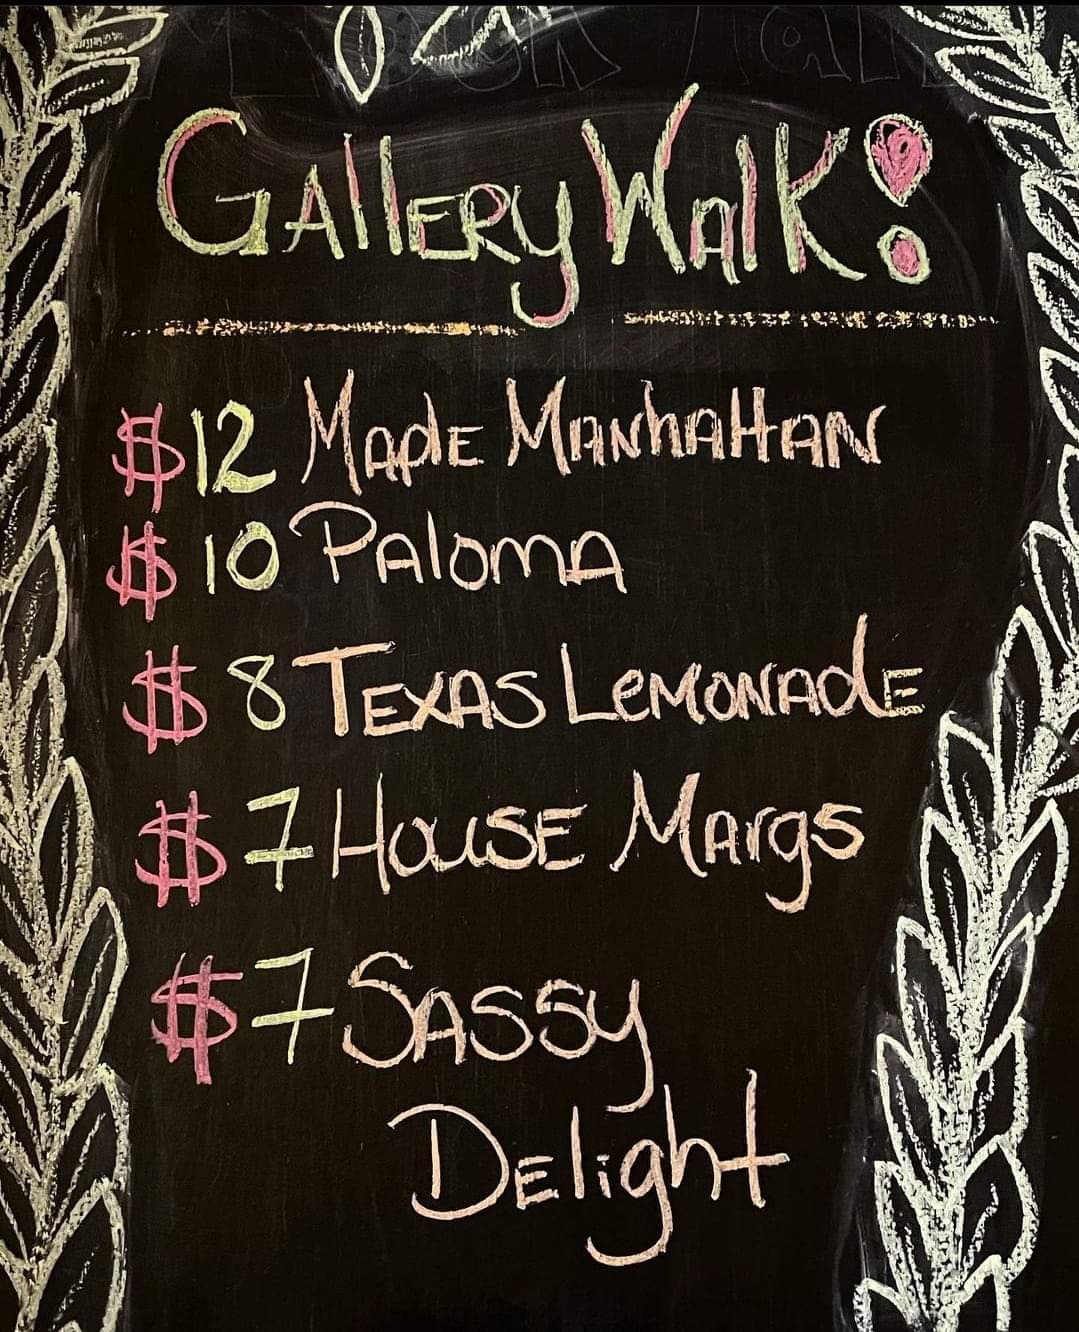 Gallery Walk!
$12 Maple Manhattan
$10 Paloma
$8 Texas Lemonade
$7 House Margs
$7 Sassy
Delight